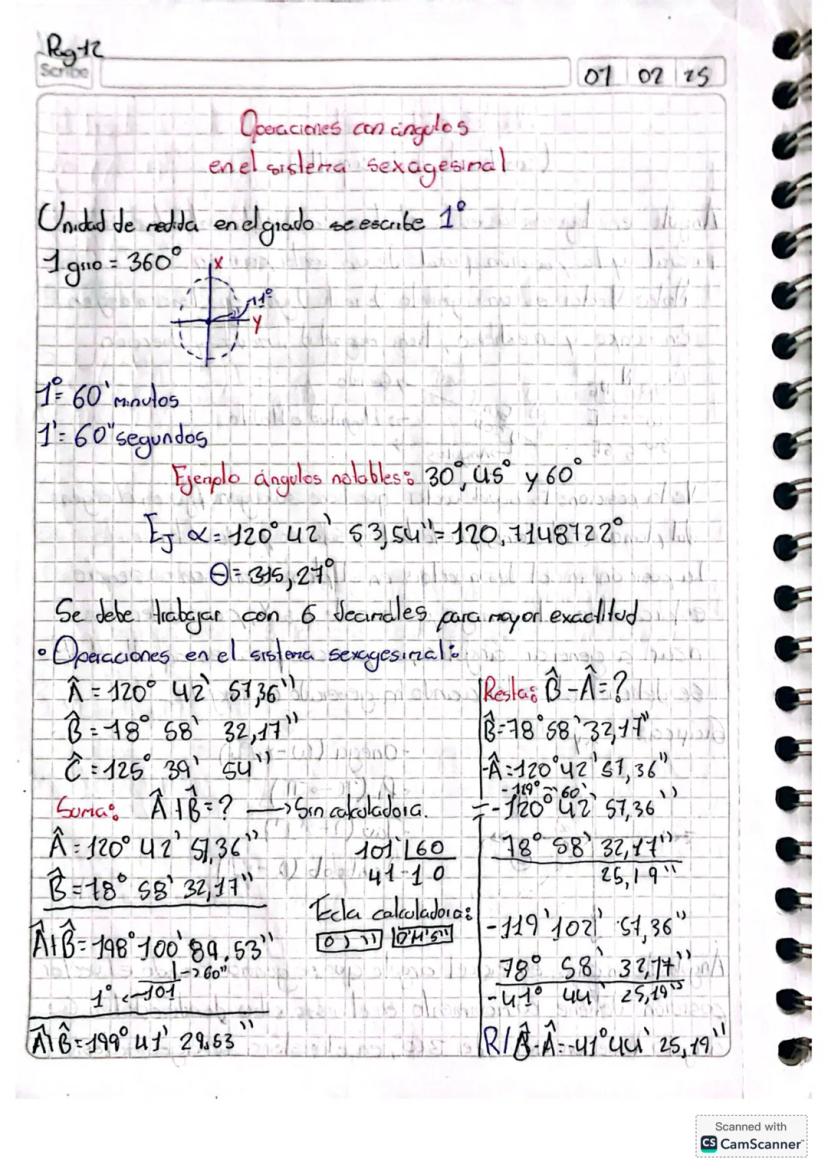 Pag-12
Scribe
07 02 25
Operaciones con ángulos
en el sistema sexagesimal
Unidad de medida en el grado se escribe 1°
1 giro = 360°
x
1°
y
1° = 60' minutos
1' = 60" segundos
Ejemplo ángulos notables: 30°, 45° y 60°
Ej α = 120° 42' 53,54" = 120,7148722°
θ = 315,27°
Se debe trabajar con 6 decimales para mayor exactitud
• Operaciones en el sistema sexagesimal:
Â = 120° 42' 57,36"
B̂ = 78° 58' 32,17"
Ĉ = 125° 39' 54"
Suma: Â + B̂ = ? → Sin calculadora.
Â = 120° 42' 57,36"
B̂ = 78° 58' 32,17"
Â+B̂ = 198° 100' 89.53"
→ 60"
1° ← 101
Â+B̂ = 199° 41' 29.53"
101' 60
41 - 1 0
Tecla calculadora:
° ' " D°M'S"
Resta: B̂ - Â = ?
B̂ = 78° 58' 32,17"
-Â = 120° 42' 57,36"
-119° 60'
= -120° 42' 57,36"
78° 58' 32,17"
25,19"
-119° 102' 57,36"
78° 58' 32,17"
-41° 44' 25,19"
R/ B̂ - Â = -41° 44' 25,19"
Scanned with
CS CamScanner